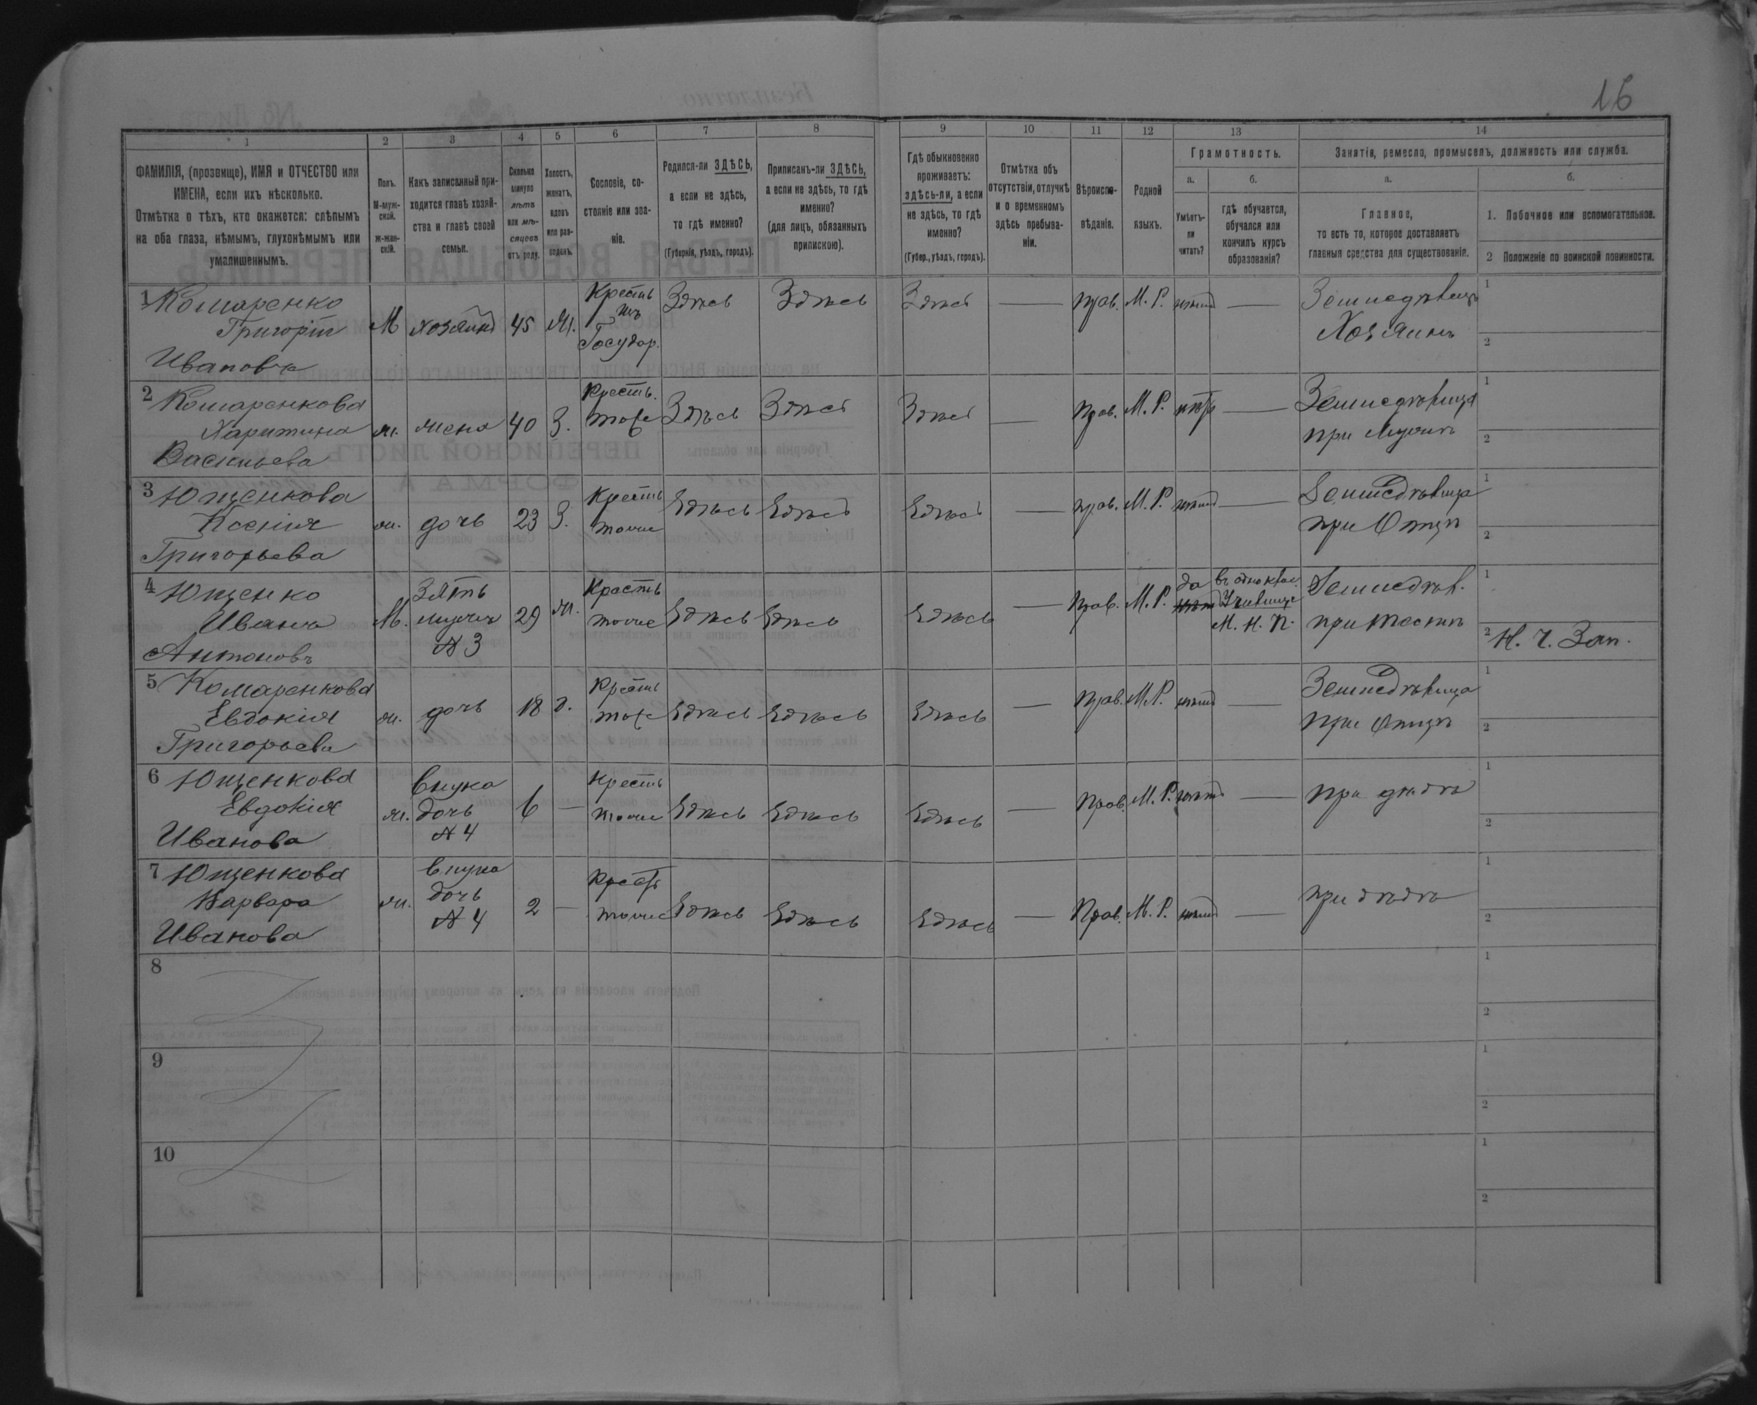 16
1 2 3 4 5 6 7 8 9 10 11 12 13 14
ФАМИЛІЯ, (прозвище), ИМЯ и ОТЧЕСТВО или
ИМЕНА, если ихъ нѣсколько.
Отмѣтка о тѣхъ, кто окажется: слѣпымъ
на оба глаза, нѣмымъ, глухонѣмымъ или
умалишеннымъ.
Полъ.
М-муж-
ской.
ж-жен-
скій.
Какъ записанный при-
ходится главѣ хозяй-
ства и главѣ своей
семьи.
Сколько
минуло
лѣтъ
или мѣ-
сяцевъ
отъ роду.
Холостъ,
женатъ,
вдовъ
или раз-
веденъ.
Сословіе, со-
стояніе или зва-
ніе.
Родился-ли ЗДѢСЬ,
а если не здѣсь,
то гдѣ именно?
(Губернія, уѣздъ, городъ).
Приписанъ-ли ЗДѢСЬ,
а если не здѣсь, то гдѣ
именно?
(для лицъ, обязанныхъ
припискою).
Гдѣ обыкновенно
проживаетъ:
здѣсь-ли, а если
не здѣсь, то гдѣ
именно?
(Губер., уѣздъ, городъ).
Отмѣтка объ
отсутствіи, отлучкѣ
и о временномъ
здѣсь пребыва-
ніи.
Вѣроиспо-
вѣданіе.
Родной
языкъ.
Грамотность.
а.
Умѣетъ-
ли
читать?
б.
гдѣ обучается,
обучался или
кончилъ курсъ
образованія?
Занятіе, ремесло, промыселъ, должность или служба.
а.
Главное,
то есть то, которое доставляетъ
главныя средства для существованія.
б.
1. Побочное или вспомогательное.
2 Положеніе по воинской повинности.
1 Комаренко
Григорій
Ивановъ
М хозяинъ 45 ж.
Кресть
Государ.
Здѣсь Здѣсь Здѣсь — Прав. М. Р. нѣтъ —
Земледѣлецъ
Хозяинъ
1
2
2 Комаренкова
Харитина
Васильева
ж. жена 40 З.
Кресть.
тоже
Здѣсь Здѣсь Здѣсь — Прав. М. Р. нѣтъ —
Земледѣлица
при мужѣ
1
2
3 Ющенкова
Ксенія
Григорьева
ж. дочь 23 З.
Кресть
тоже
Здѣсь Здѣсь Здѣсь — Прав. М. Р. нѣтъ —
Земледѣлица
при Отцѣ
1
2
4 Ющенко
Иванъ
Антоновъ
М.
Зять
мужъ
№ 3
29 ж.
Кресть
тоже
Здѣсь Здѣсь Здѣсь — Прав. М. Р.
да
нѣтъ
въ однокл.
Училище
М. Н. П.
Земледѣл.
при тестѣ
1
2 Н. Ч. Зап.
5 Комаренкова
Евдокія
Григорьева
ж. дочь 18 д.
Кресть
тоже
Здѣсь Здѣсь Здѣсь — Прав. М. Р. нѣтъ —
Земледѣлица
при отцѣ
1
2
6 Ющенкова
Евдокія
Иванова
ж.
Внука
дочь
№ 4
6 —
Кресть
тоже
Здѣсь Здѣсь Здѣсь — Прав. М. Р. нѣтъ —
при дѣдѣ
1
2
7 Ющенкова
Варвара
Иванова
ж.
внука
дочь
№ 4
2 —
Кресть
тоже
Здѣсь Здѣсь Здѣсь — Прав. М. Р. нѣтъ —
при дѣдѣ
1
2
8
1
2
9
1
2
10
1
2